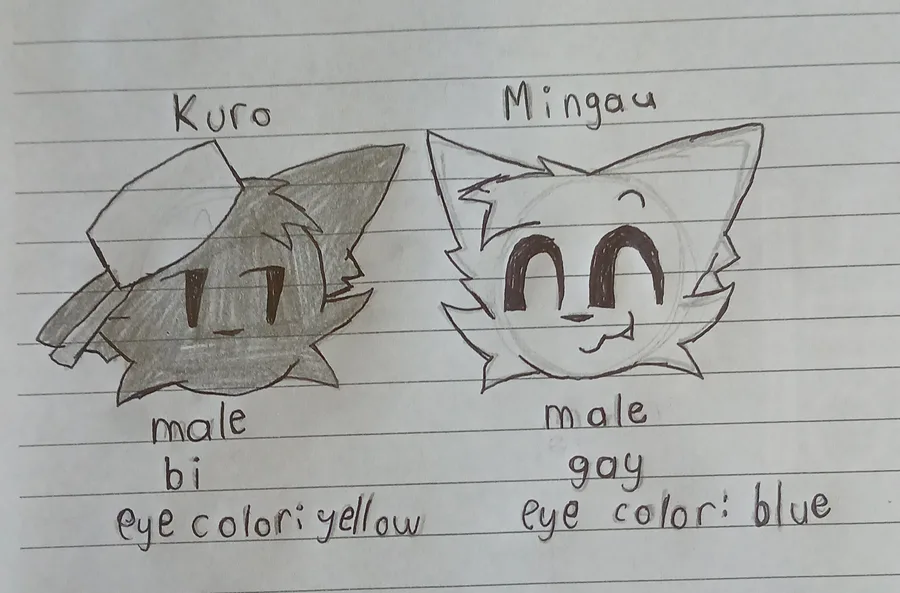 Kuro
male
bi
eye color: yellow
Mingau
male
gay
eye color: blue